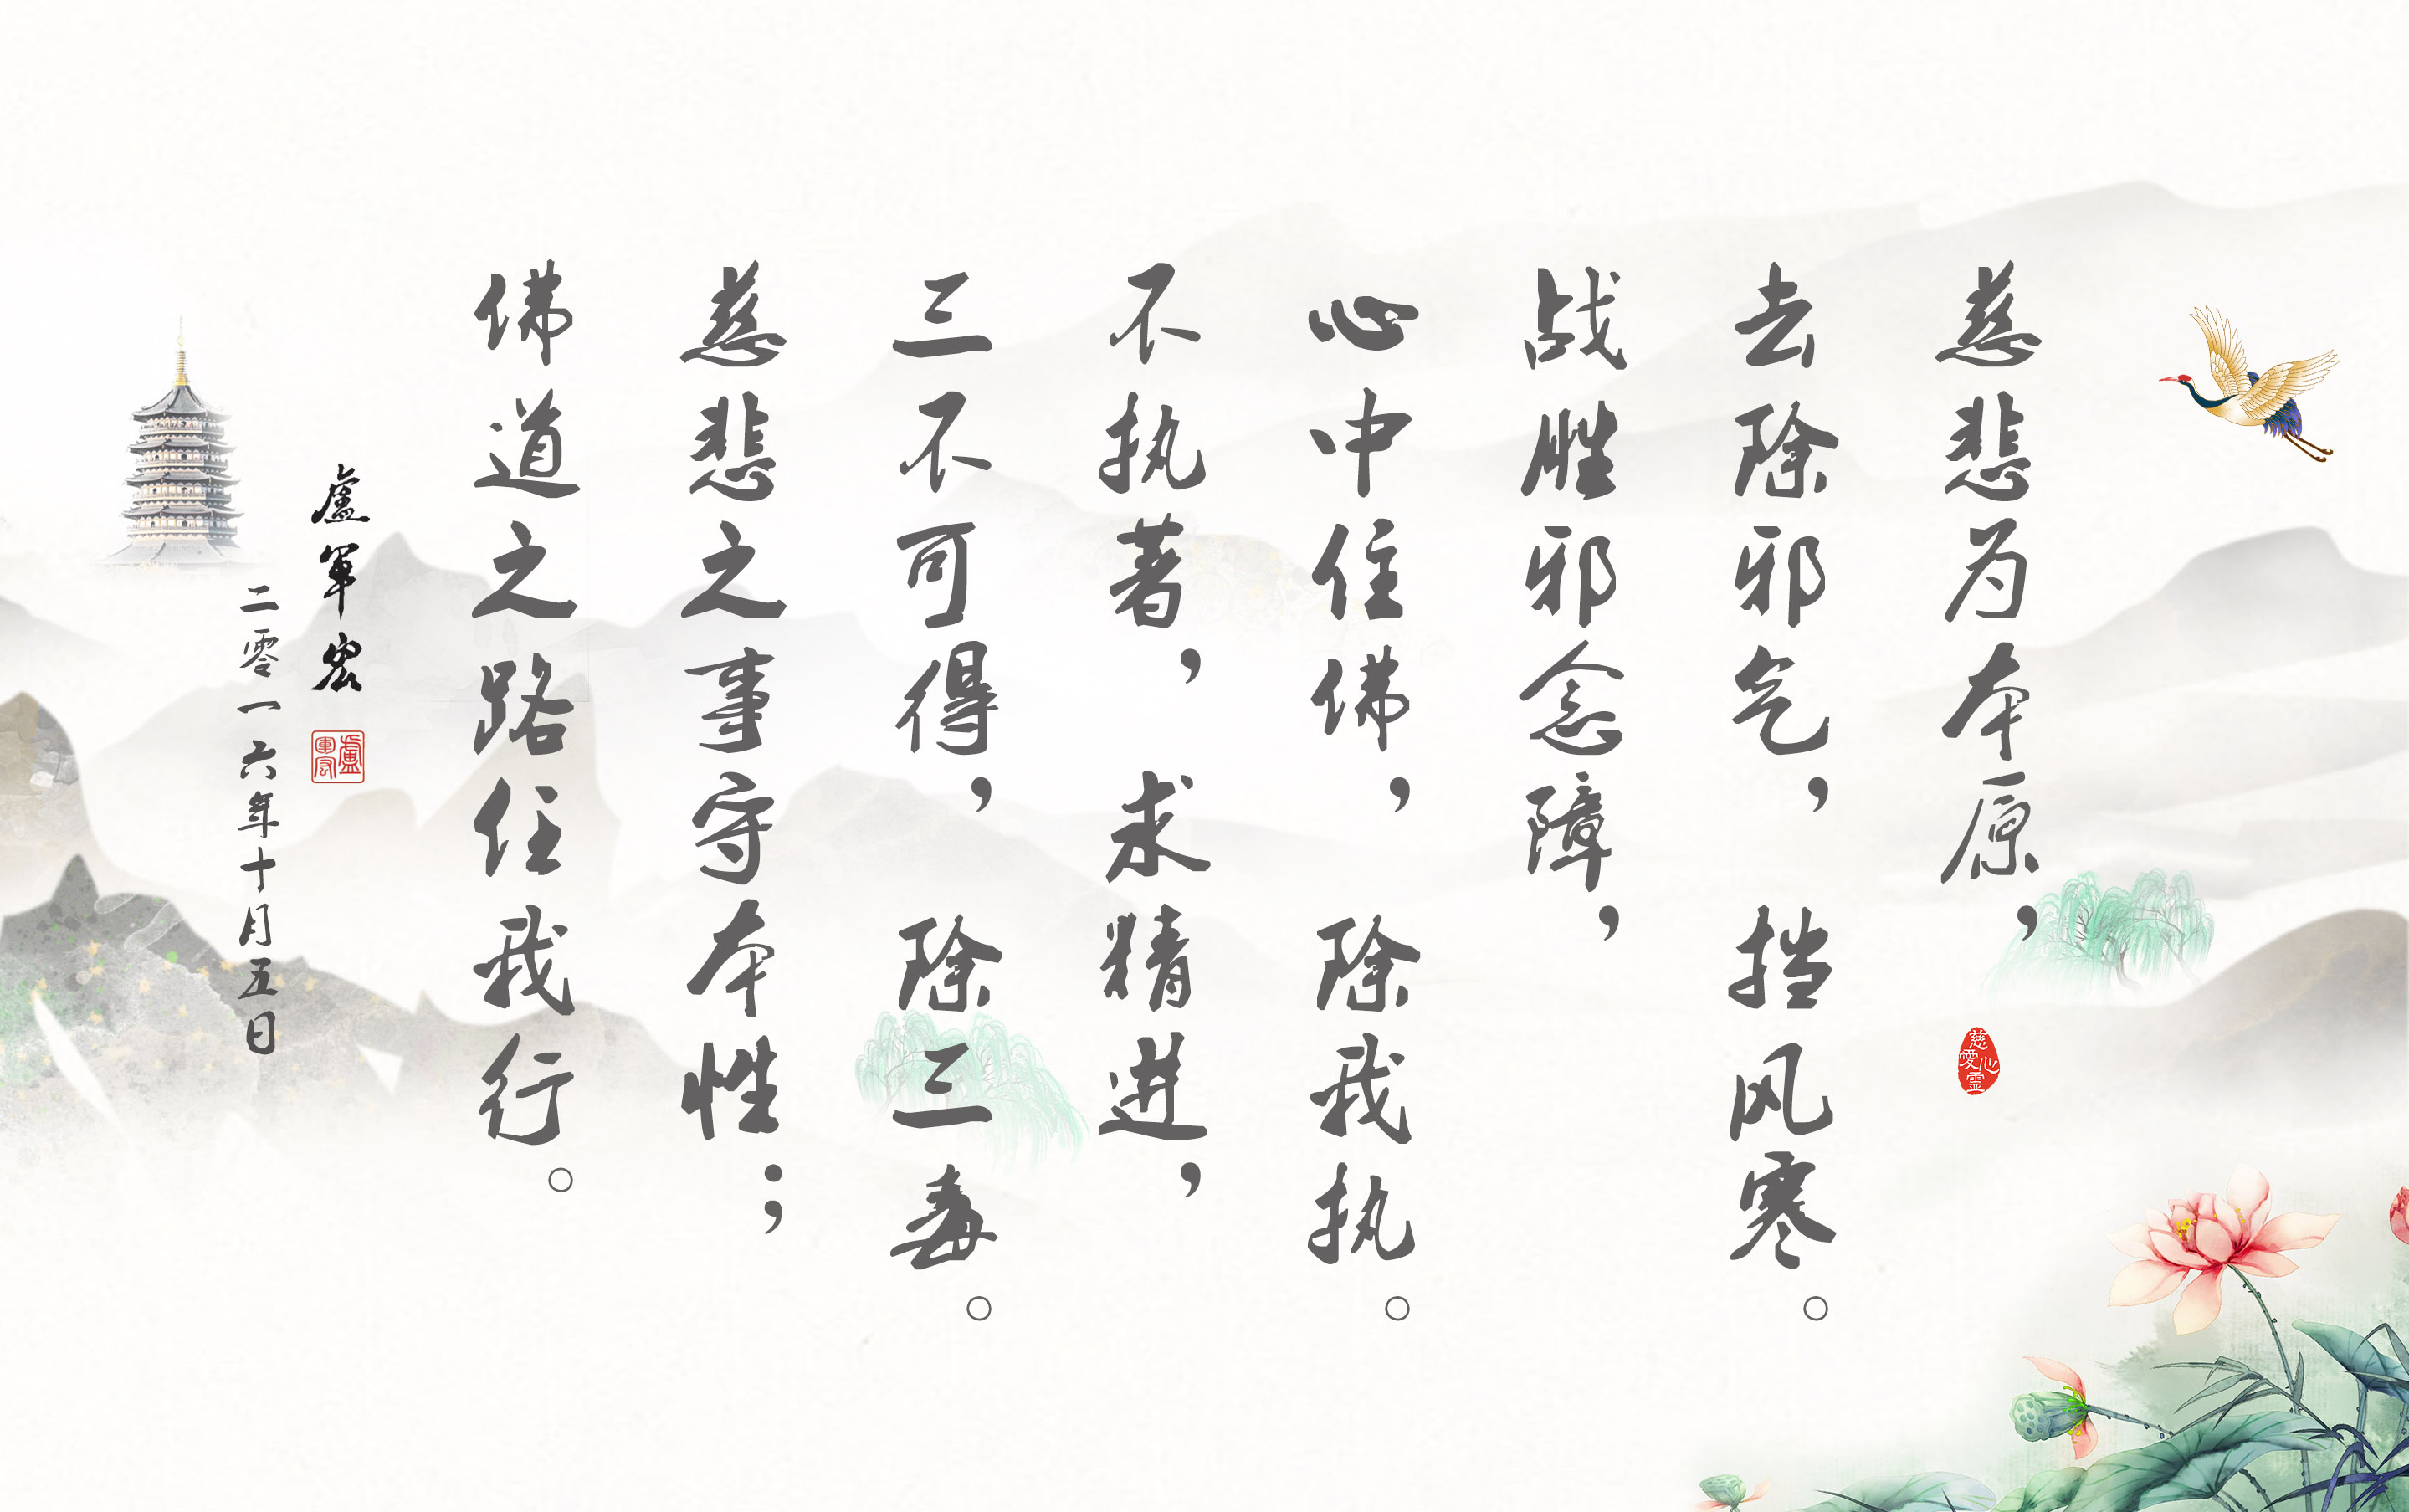 慈悲为本原，
去除邪气，挡风寒。
战胜邪念障，
心中住佛，除我执。
不执著，求精进，
三不可得，除三毒。
慈悲之事守本性；
佛道之路任我行。
盧軍宏
二零一六年十月五日
慈愛心靈